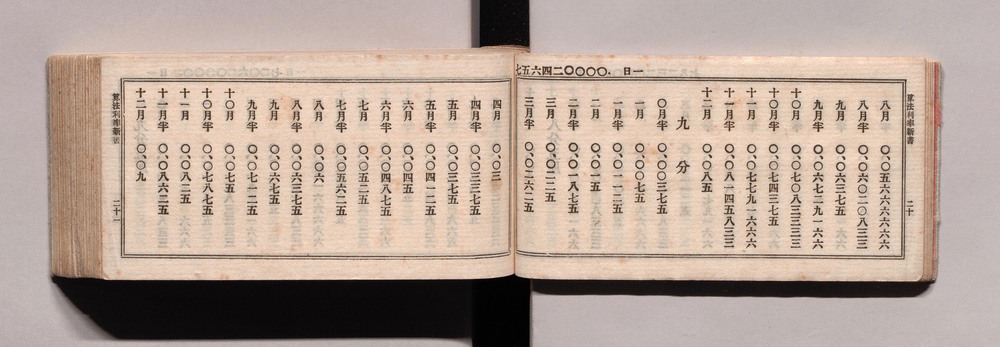 一日 .〇〇〇〇二四六五七
算法利率新書 二十
八月 〇、〇五六六六六六六
八月半 〇、〇六〇二〇八三三
九月 〇、〇六三七五
九月半 〇、〇六七二九一六六
十〇月 〇、〇七〇八三三三三
十〇月半 〇、〇七四三七五
十一月 〇、〇七七九一六六六
十一月半 〇、〇八一四五八三三
十二月 〇、〇八五
九分
〇月半 〇、〇〇三七五
一月 〇、〇〇七五
一月半 〇、〇一一二五
二月 〇、〇一五
二月半 〇、〇一八七五
三月 〇、〇二二五
三月半 〇、〇二六二五
四月 〇、〇三
四月半 〇、〇三三七五
五月 〇、〇三七五
五月半 〇、〇四一二五
六月 〇、〇四五
六月半 〇、〇四八七五
七月 〇、〇五二五
七月半 〇、〇五六二五
八月 〇、〇六
八月半 〇、〇六三七五
九月 〇、〇六七五
九月半 〇、〇七一二五
十〇月 〇、〇七五
十〇月半 〇、〇七八七五
十一月 〇、〇八二五
十一月半 〇、〇八六二五
十二月 〇、〇九
算法利率新書 二十一